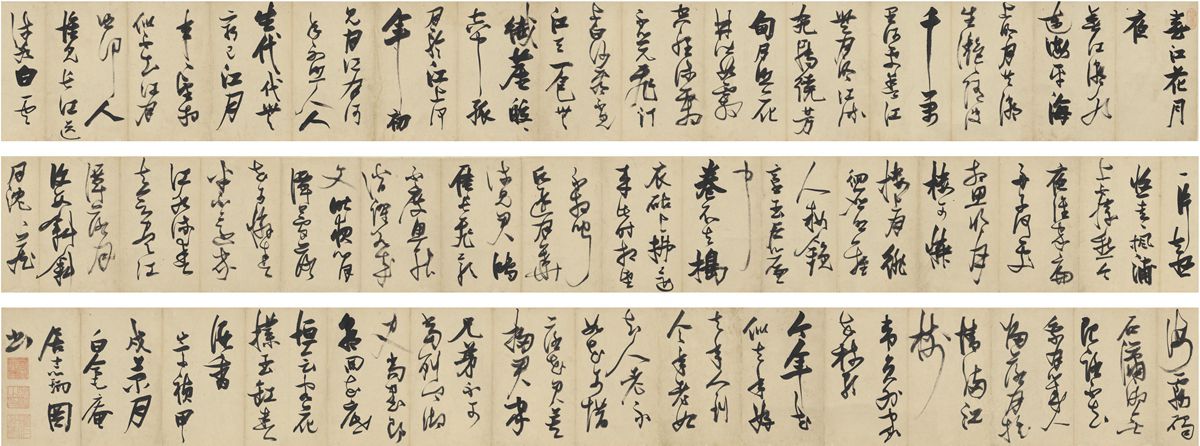 春江花月
夜
春江潮水
連海平海
上明月共潮
生灔灔隨波
千萬
里何處春江
無月明江流
宛轉繞芳
甸月照花
林皆似霰
空裏流霜
不覺飛汀
上白沙看不見
江天一色無
纖塵皎皎
空中孤
月輪江上何
年初
見月江月何
年初照人人
生代代無
窮已江月
年年只相
似不知江月
照何人
但見長江送
流水白雲
一片去悠
悠青楓浦
上不勝愁誰家
今夜扁
舟子何處
相思明月
樓可憐
樓上有徘
徊月應照離
人妝鏡
臺玉戶簾
中
卷不去搗
衣砧上拂還
來此時相望
不相聞
願逐月華
流照君鴻
雁長飛光
不度魚龍
潛躍水成
文昨夜閒
潭夢落
花可憐春
半不還家
江水流春
去欲盡江
潭落月
復西斜斜
月沉沉藏
海霧碣
石瀟湘無
限路不知
乘月幾人
歸落月搖
情滿江
樹
韋員外家
花樹歌
今年花
似去年好
去年人到
今年老始
知人老不
如花可惜
落花君莫
掃君家
兄弟不可
當列卿御史
尚書郎
朝回花底
恒會客花
撲玉缸春
酒香
崇禎甲
戌
月
白毫庵
居士瑞圖
書